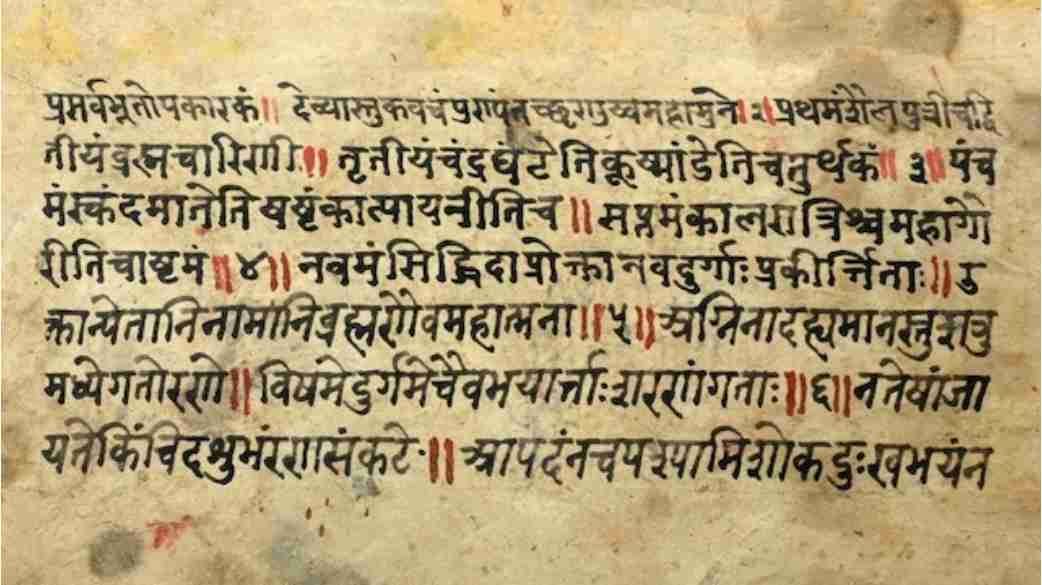 प्रसर्वभूतोपकारकं॥ देव्यास्तुकवचंपुण्यंतच्छृणुष्वमहामुने।२।प्रथमंशैलपुत्रीचद्वि
तीयंब्रह्मचारिणी॥ तृतीयंचंद्रघंटेतिकूष्मांडेतिचतुर्थकं॥ ३॥ पंच
मंस्कंदमातेतिषष्ठंकात्यायनीतिच॥ सप्तमंकालरात्रिश्चमहागौ
रीतिचाष्टमं॥४॥ नवमंसिद्धिदाप्रोक्तानवदुर्गाःप्रकीर्त्तिताः॥ उ
क्तान्येतानिनामानिब्रह्मणैवमहात्मना॥५॥ अग्निनादह्यमानस्तुशत्रु
मध्येगतोरणे॥ विषमेदुर्गमेचैवभयार्त्ताःशरणंगताः॥६॥नतेषांजा
यतेकिंचिदशुभंरणसंकटे॥ आपदंनचपश्यामिशोकदुःखभयंन